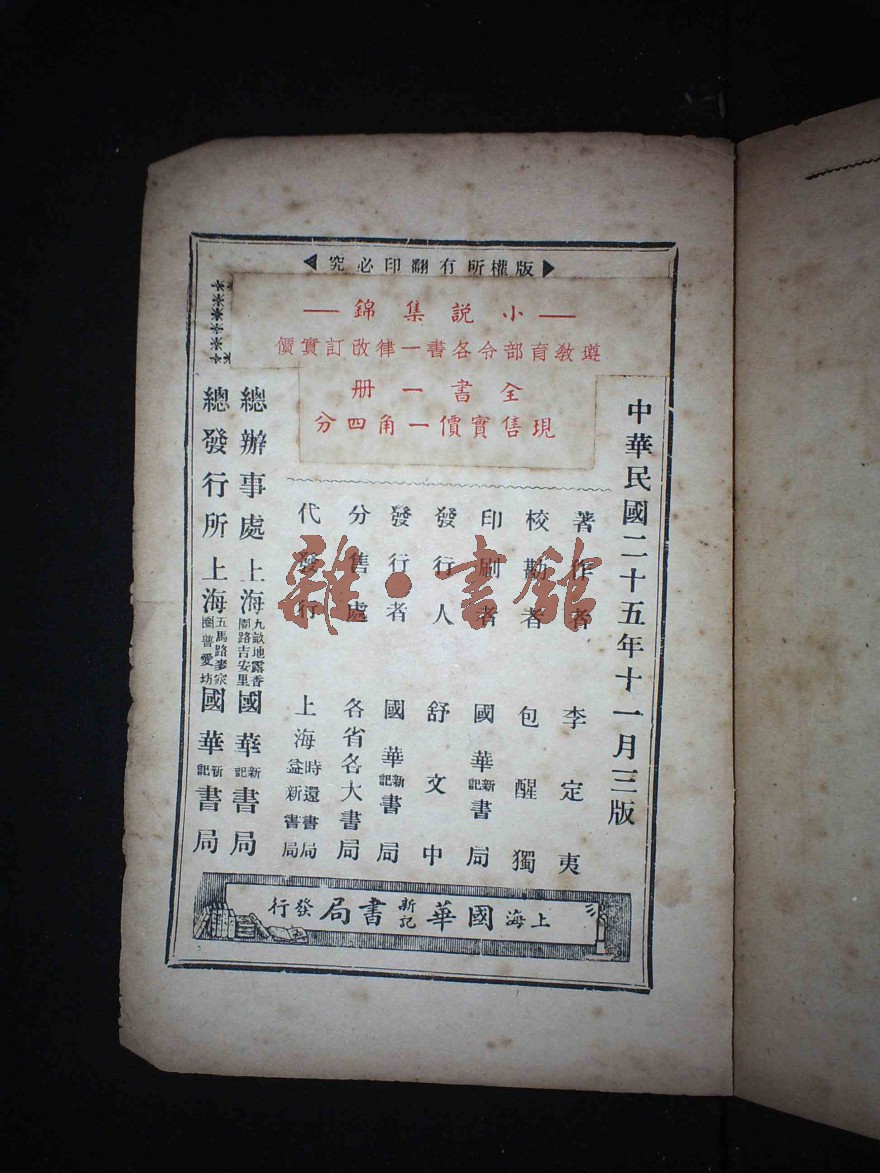 版權所有翻印必究
小說集錦
遵教育部令各書一律改訂實價
全書一册
現售實價一角四分
中華民國二十五年十一月三版
著作者 李定夷
校勘者 包醒獨
印刷者 國華新記書局
發行人 舒文中
發行者 國華新記書局
分售處 各省各大書局
代發行 上海時還書局 益新書局
總辦事處 上海九畝地露香園路吉安里 國華新記書局
總發行所 上海五馬路麥家圈普愛坊 國華新記書局
上海國華新記書局發行
雜·書館